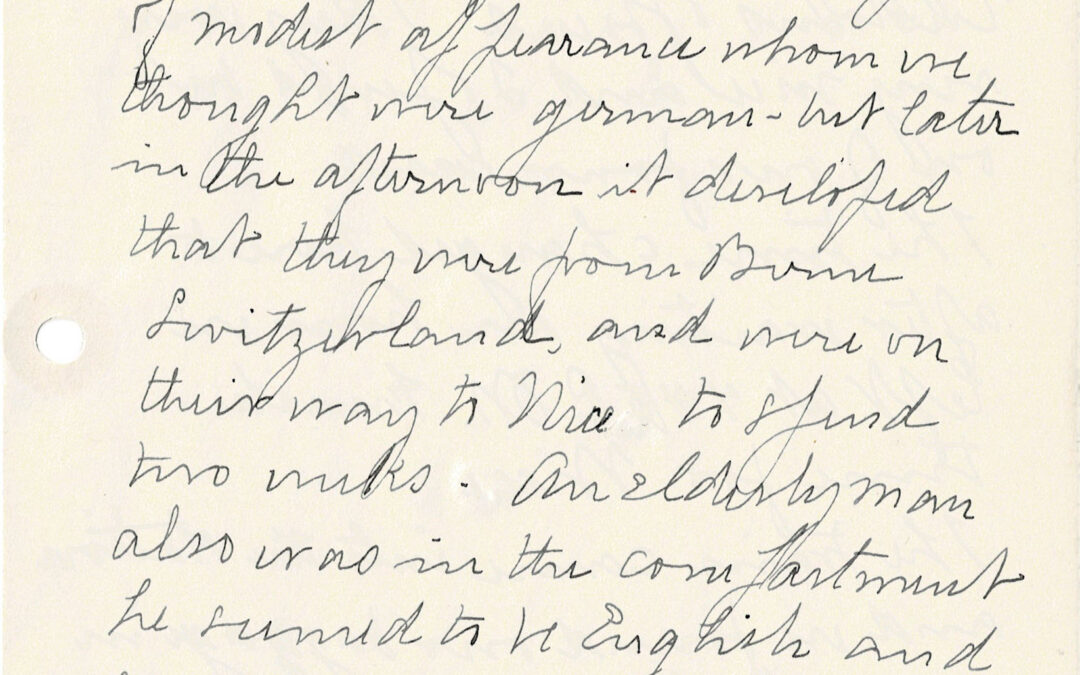 of modest appearance whom we
thought were german - but later
in the afternoon it developed
that they were from Berne
Switzerland, and were on
their way to Nice to spend
two weeks. An elderly man
also was in the compartment
he seemed to be English and